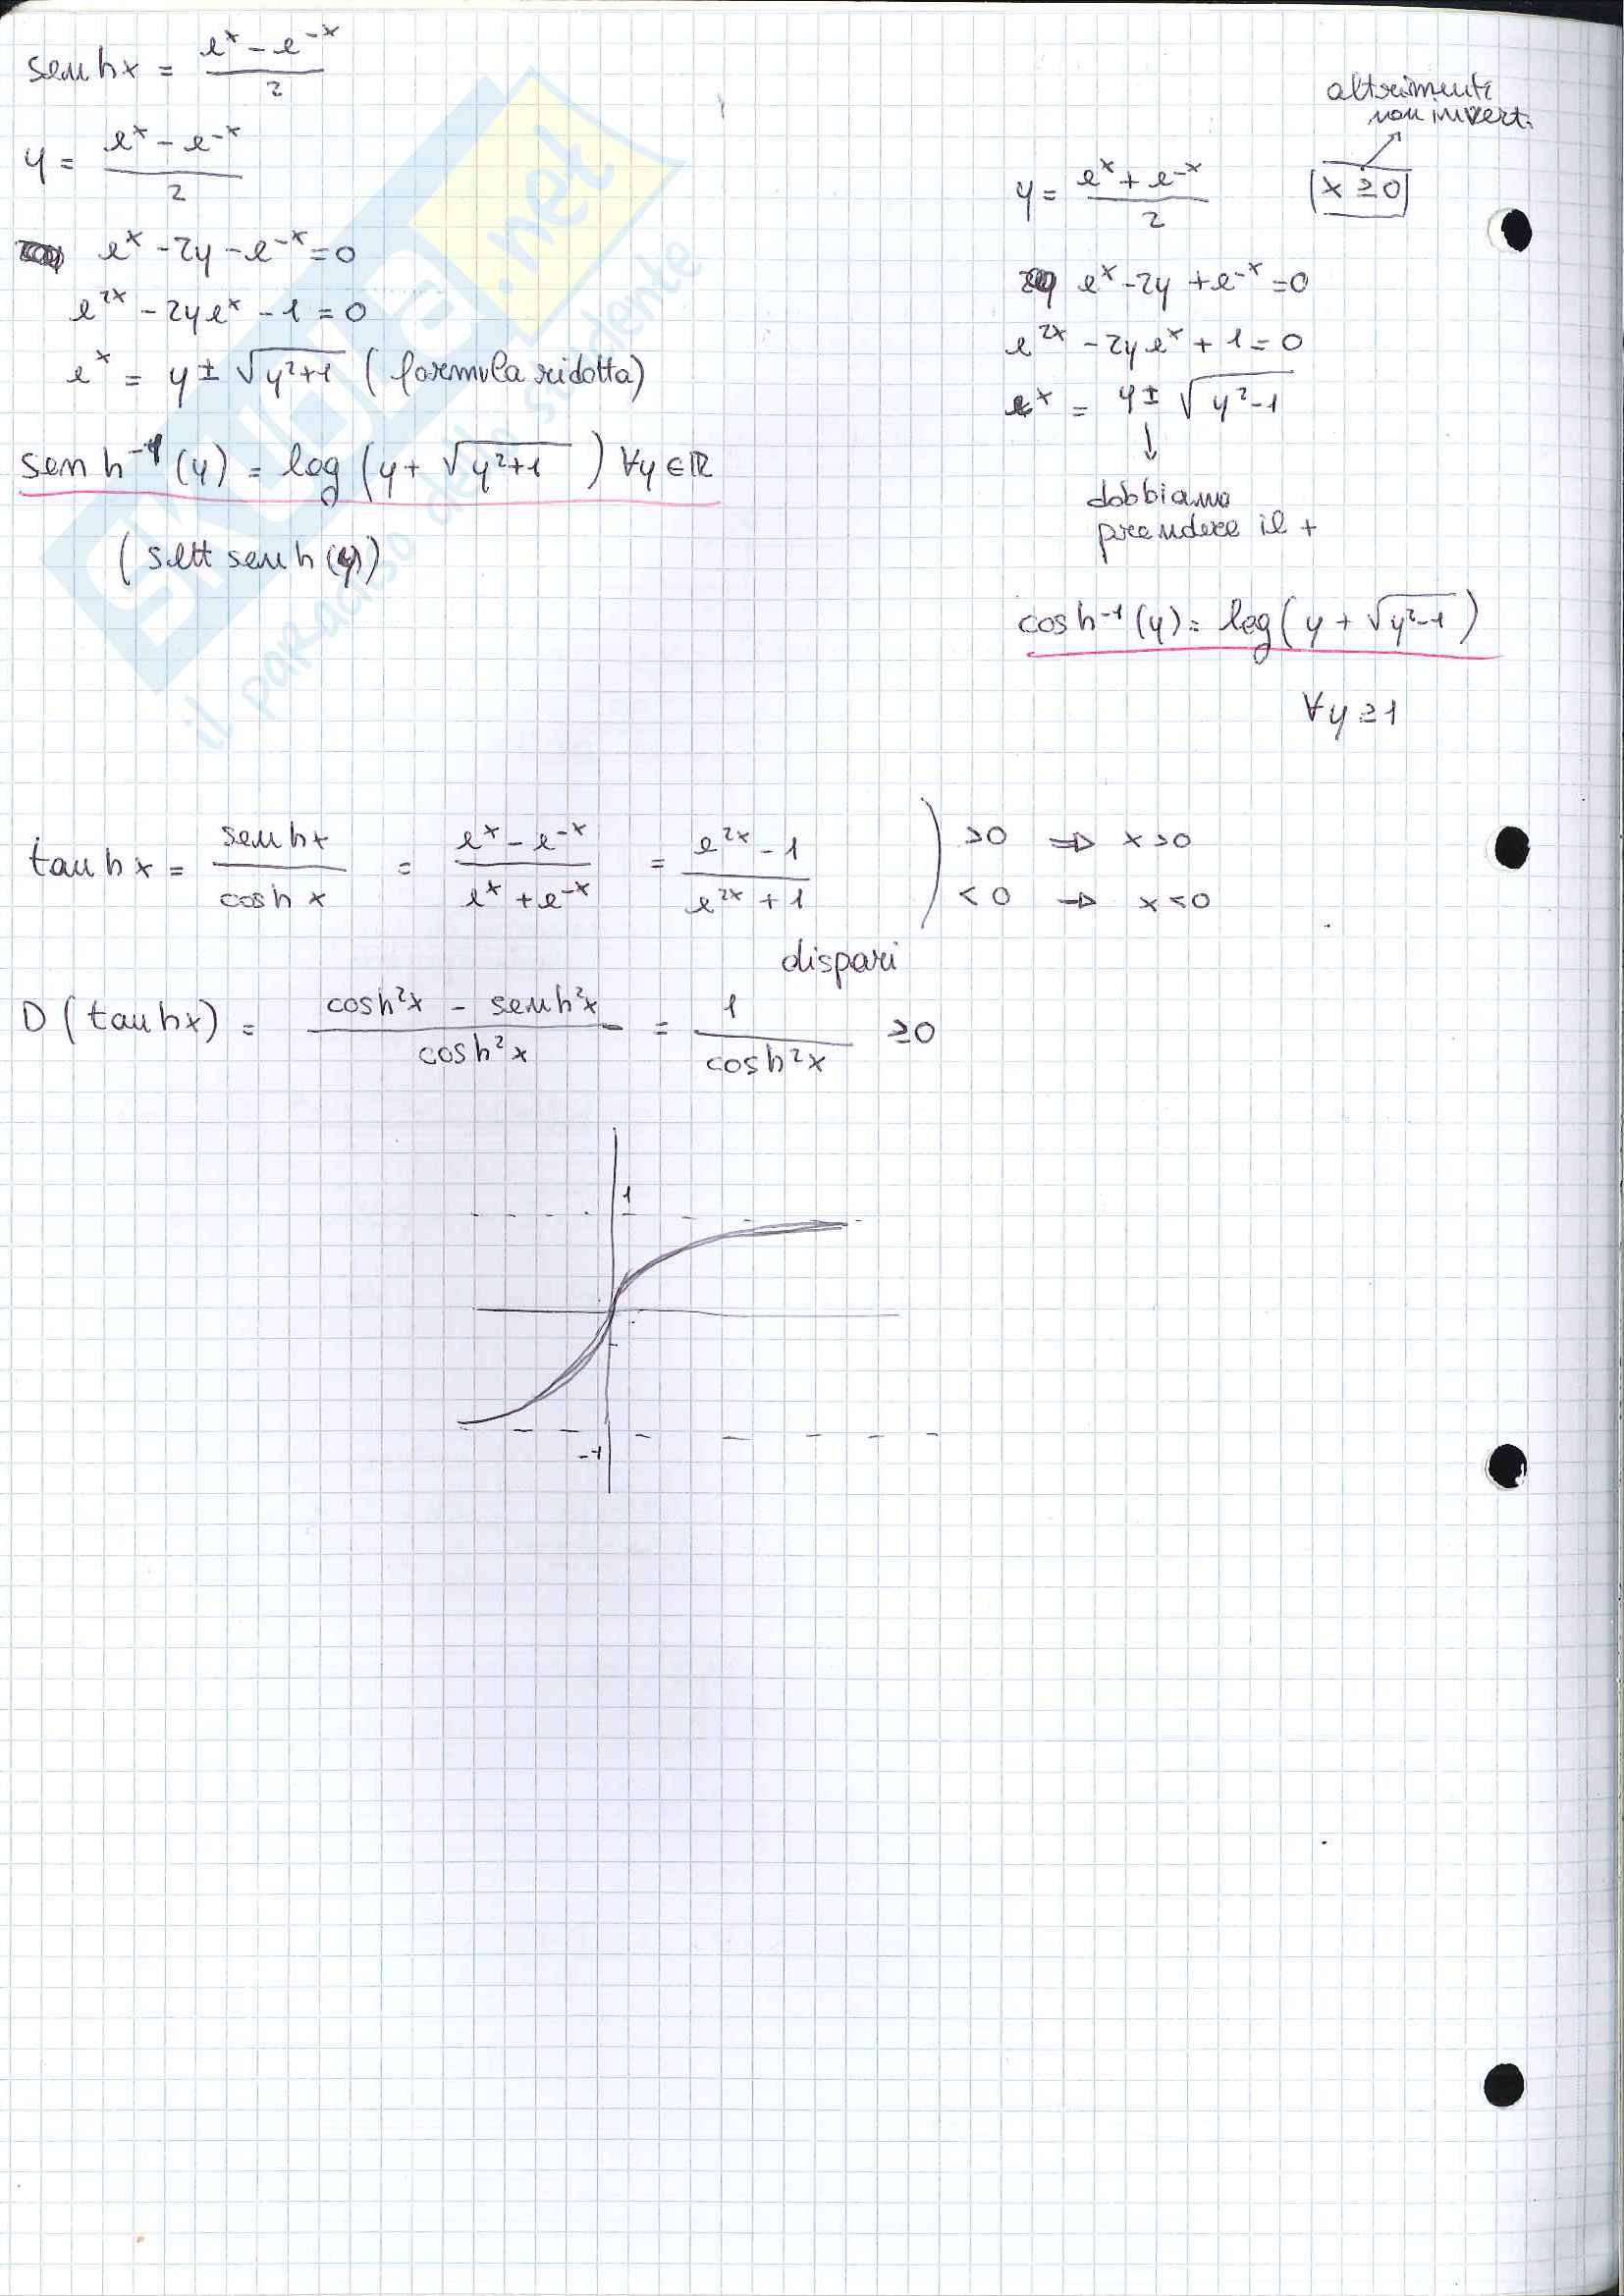 senhx = (e^x - e^-x)/2
y = (e^x - e^-x)/2
e^x - 2y - e^-x = 0
e^2x - 2ye^x - 1 = 0
e^x = y ± √(y²+1) (formula ridotta)
senh^-1 (y) = log (y + √(y²+1)) ∀y ∈ ℝ
(sett senh (y))
altrimenti
non invert.
y = (e^x + e^-x)/2 x ≥ 0
e^x - 2y + e^-x = 0
e^2x - 2ye^x + 1 = 0
e^x = y ± √(y²-1)
↓
dobbiamo
prendere il +
cosh^-1 (y) = log (y + √(y²-1))
∀y ≥ 1
tanhx = senhx/coshx = (e^x - e^-x)/(e^x + e^-x) = (e^2x - 1)/(e^2x + 1) ) >0 ⇒ x>0
<0 → x<0
dispari
D (tanhx) = (cosh²x - senh²x)/cosh²x = 1/cosh²x ≥0
1
-1
SKUOLA.net
il paradiso dello studente